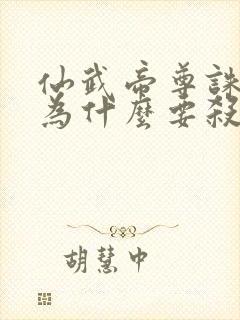 仙武帝尊誅
為什麼要殺
胡慧中